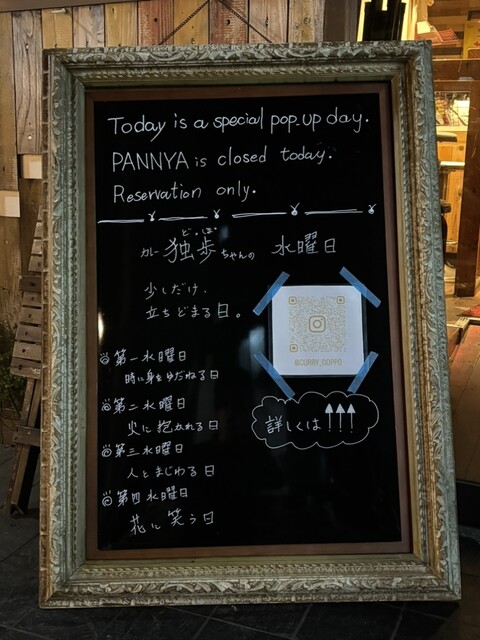 Today is a special pop-up day.
PANNYA is closed today.
Reservation only.
どっぽ
カレー独歩ちゃんの 水曜日
少しだけ、
立ちどまる日。
@CURRY_DOPPO
第一水曜日
時に身をゆだねる日
第二水曜日
火に抱かれる日
第三水曜日
人とまじわる日
第四水曜日
花に笑う日
詳しくは↑↑↑